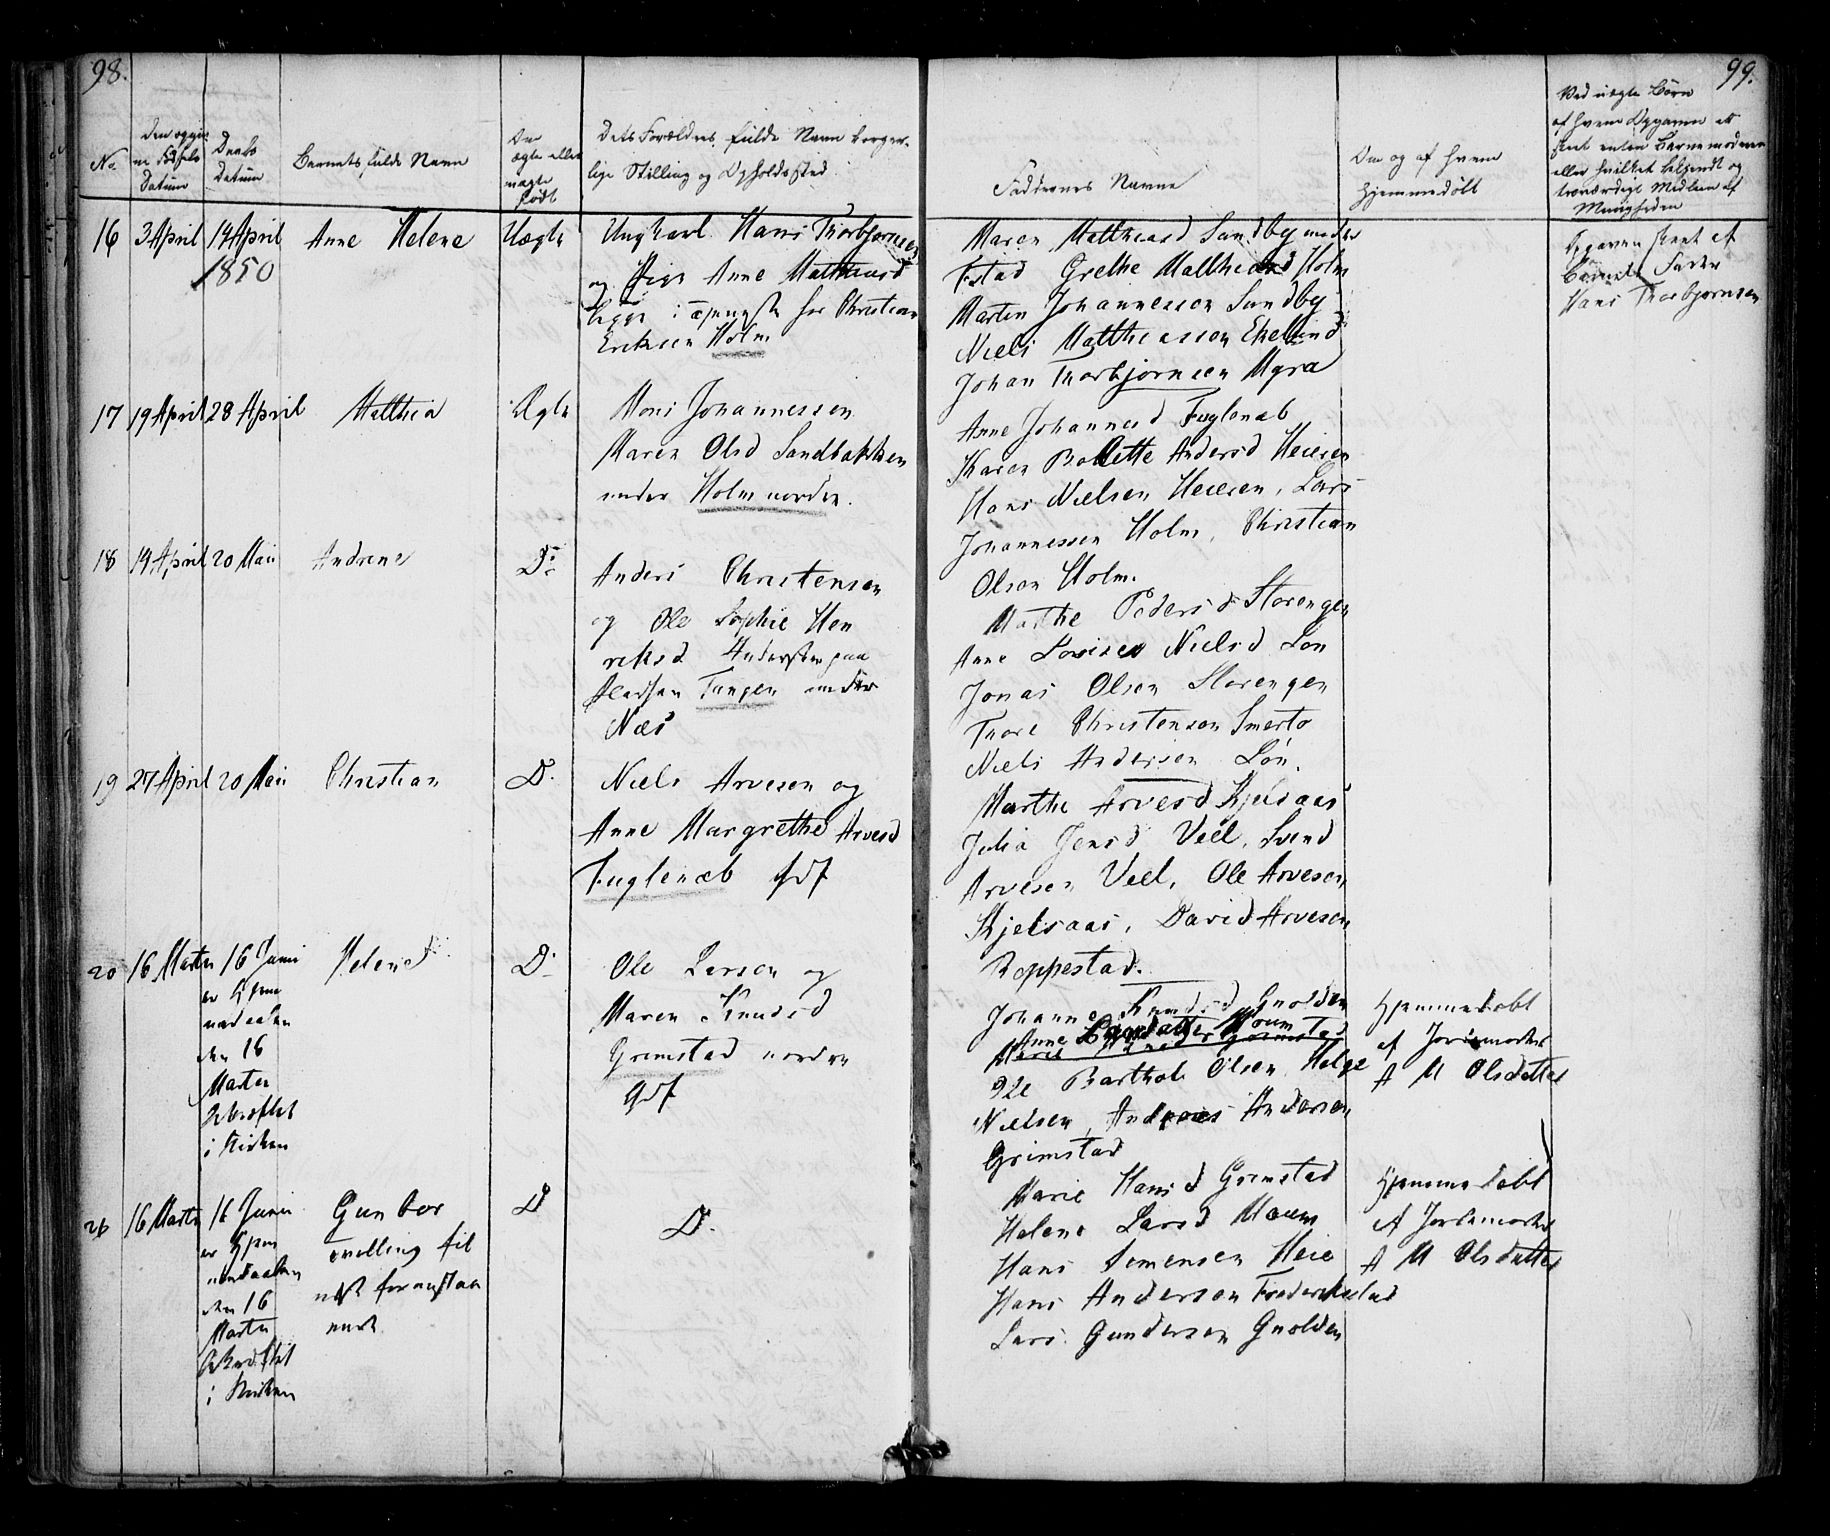 98.
99.
No.
Den opgiv-
ne Fødsels
Datum
Daabs
Datum
Barnets fulde Navn
Om
ægte eller
uægte
født
Dets Forældres fulde Navn borger-
lige Stilling og Opholdssted
Faddernes Navne
Om og af hvem
Hjemmedøbt
Ved uægte Børn
af hvem Opgaven er
skeet enten Barnemoderen
eller hvilket bekjendt og
troværdigt Medlem af
Menigheden
16
3 April
14 April
1850
Anne Helene
Uægte
Ungkarl Hans Thorbjørnsen
og Pige Anne Matthiasd
begge i for Christian
Eriksen Holm
Maren Matthiasd Sundby
Grethe Matthiasd Holm
Marten Johannessen Sundby
Niels Matthiassen Ekelund
Johan Thorbjørnsen Myra
Opgaven skeet af
Barnets Fader
Hans Thorbjørnsen
17
19 April
28 April
Matthea
Ægte
Mons Johannessen
Maren Olsd Sandbakken
under Holm nordre.
Anne Johannesd Fuglenæb
Karen Bollette Andersd Heieren
Hans Nielsen Heieren, Lars
Johannessen Holm, Christian
Olsen Holm.
18
14 April
20 Maii
Andrene
Do
Anders Christensen
og Ole Sophie Hen
riksd
Pladsen Tangen under
Næs
Marthe Pedersd Storengen
Anne Lovise Nielsd Løn
Jonas Olsen Storengen
Thore Christensen Smerto
Niels Andersen Løn.
19
27 April
20 Maii
Christian
D.
Niels Arvesen og
Anne Margrethe Arvesd
Fuglenæb Gdf
Marthe Arvesd Kjelsaas
Julia Jensd Veel, Svend
Arvesen Veel, Ole Arvesen
Kjelsaas, David Arvesen
Roppestad.
20
16 Marts
16 Junii
er Hjem
medøbt
den 16
Marts
Bekræftet
i Kirken
Helene
D.
Ole Larsen og
Maren Knudsd
Grimstad nordre
Gdf
Johanne Knudsd Gnolden
Anne Larsdatter Moum
Ole Barthol Olsen Helge
Nielsen, Andreas Andersen
Grimstad
Hjemmedøbt
af Jordmoder
A M Olsdatter
16 Marts
16 Junii
er Hjem
medøbt
den 16
Marts
Bekræftet
i Kirken
Gunbor
tvilling til
næst foranstaa
ende
D
D.
Marie Hansd Grimstad
Helene Larsd Moum
Hans Simensen Heie
Hans Andersen Frederikstad
Lars Gundersen Gnolden
Hjemmedøbt
af Jordmoder
A M Olsdatter